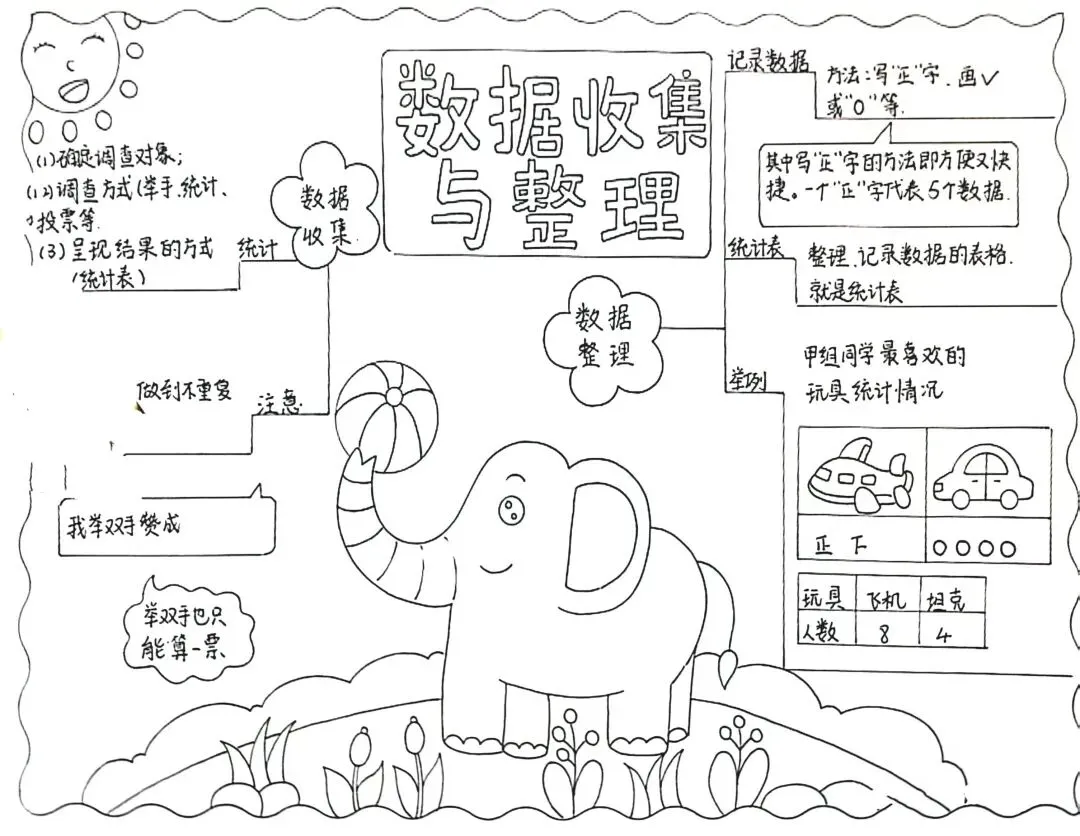 数据收集
与整理
(1)确定调查对象;
(2)调查方式(举手、统计、
投票等.
(3)呈现结果的方式
(统计表)
统计
数据
收集.
做到不重复
注意.
我举双手赞成
举双手也只
能算一票.
数据
整理
记录数据
方法:写“正”字、画✓
或“O”等.
其中写“正”字的方法即方便又快
捷。一个“正”字代表5个数据.
统计表
整理、记录数据的表格.
就是统计表
举例
甲组同学最喜欢的
玩具统计情况
正 下
○○○○
玩具 飞机 坦克
人数 8 4